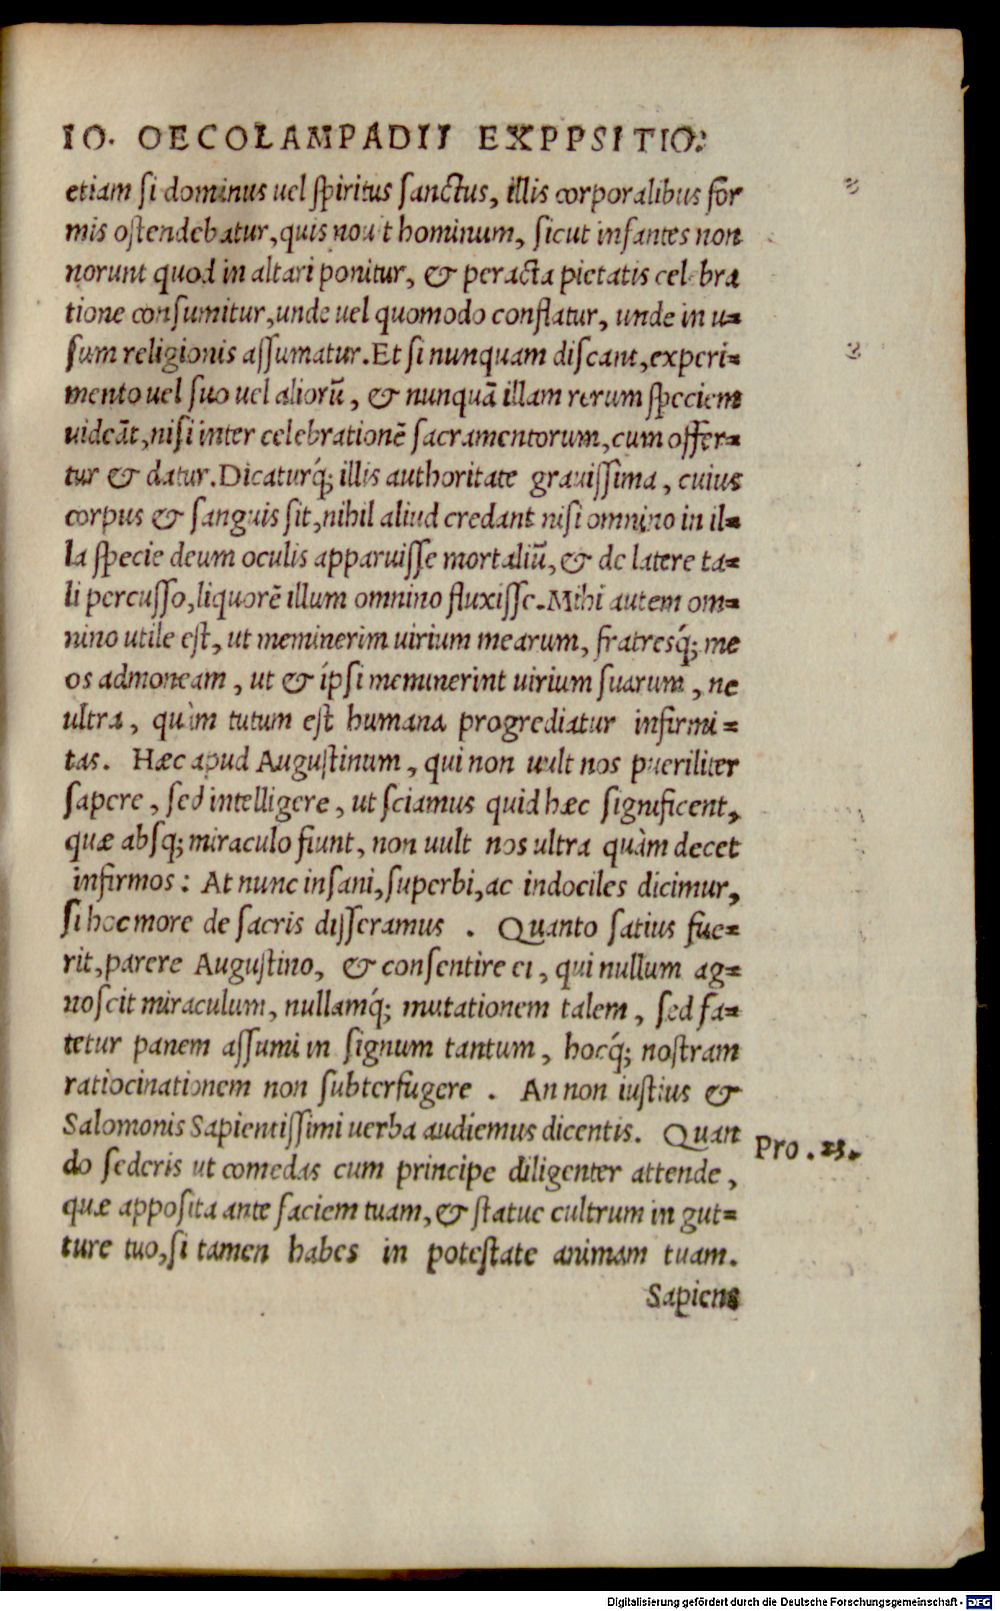 IO. OECOLAMPADII EXPPSITIO.
etiam si dominus uel spiritus sanctus, illis corporalibus for
mis ostendebatur, quis nouit hominum, sicut infantes non
norunt quod in altari ponitur, & peracta pietatis celebra
tione consumitur, unde uel quomodo conflatur, unde in u=
sum religionis assumatur. Et si nunquam discant, experi=
mento uel suo uel aliorū, & nunquā illam rerum speciem
uideāt, nisi inter celebrationē sacramentorum, cum offer=
tur & datur. Dicaturq́; illis authoritate grauissima, cuius
corpus & sanguis sit, nihil aliud credant nisi omnino in il=
la specie deum oculis apparuisse mortaliū, & de latere ta=
li percusso, liquorē illum omnino fluxisse. Mihi autem om=
nino utile est, ut meminerim uirium mearum, fratresq́; me
os admoneam, ut & ípsi meminerint uirium suarum, ne
ultra, quàm tutum est humana progrediatur infirmi=
tas. Hæc apud Augustinum, qui non uult nos pueriliter
sapere, sed intelligere, ut sciamus quid hæc significent,
quæ absq; miraculo fiunt, non uult nos ultra quàm decet
infirmos: At nunc insani, superbi, ac indociles dicimur,
si hoc more de sacris disseramus. Quanto satius fue=
rit, parere Augustino, & consentire ei, qui nullum ag=
noscit miraculum, nullamq́; mutationem talem, sed fa=
tetur panem assumi in signum tantum, hocq́; nostram
ratiocinationem non subterfugere. An non iustius &
Salomonis Sapientissimi uerba audiemus dicentis. Quan
do sederis ut comedas cum principe diligenter attende,
Pro. 23.
quæ apposita ante faciem tuam, & statue cultrum in gut=
ture tuo, si tamen habes in potestate animam tuam.
Sapiens
Digitalisierung gefördert durch die Deutsche Forschungsgemeinschaft - DFG